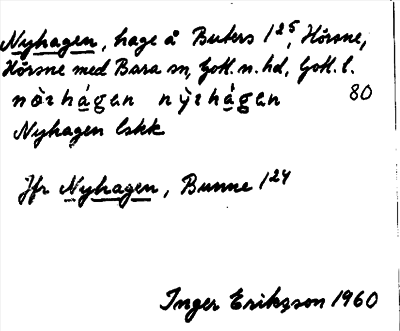 Nyhagen, hage å Buters 1²⁵, Hörsne,
Hörsne med Bara sn, Gotl. n. hd, Gotl. l.
80
Nyhagen lskk
Jfr Nyhagen, Bunne 1²⁴
Inger Erikzson 1960